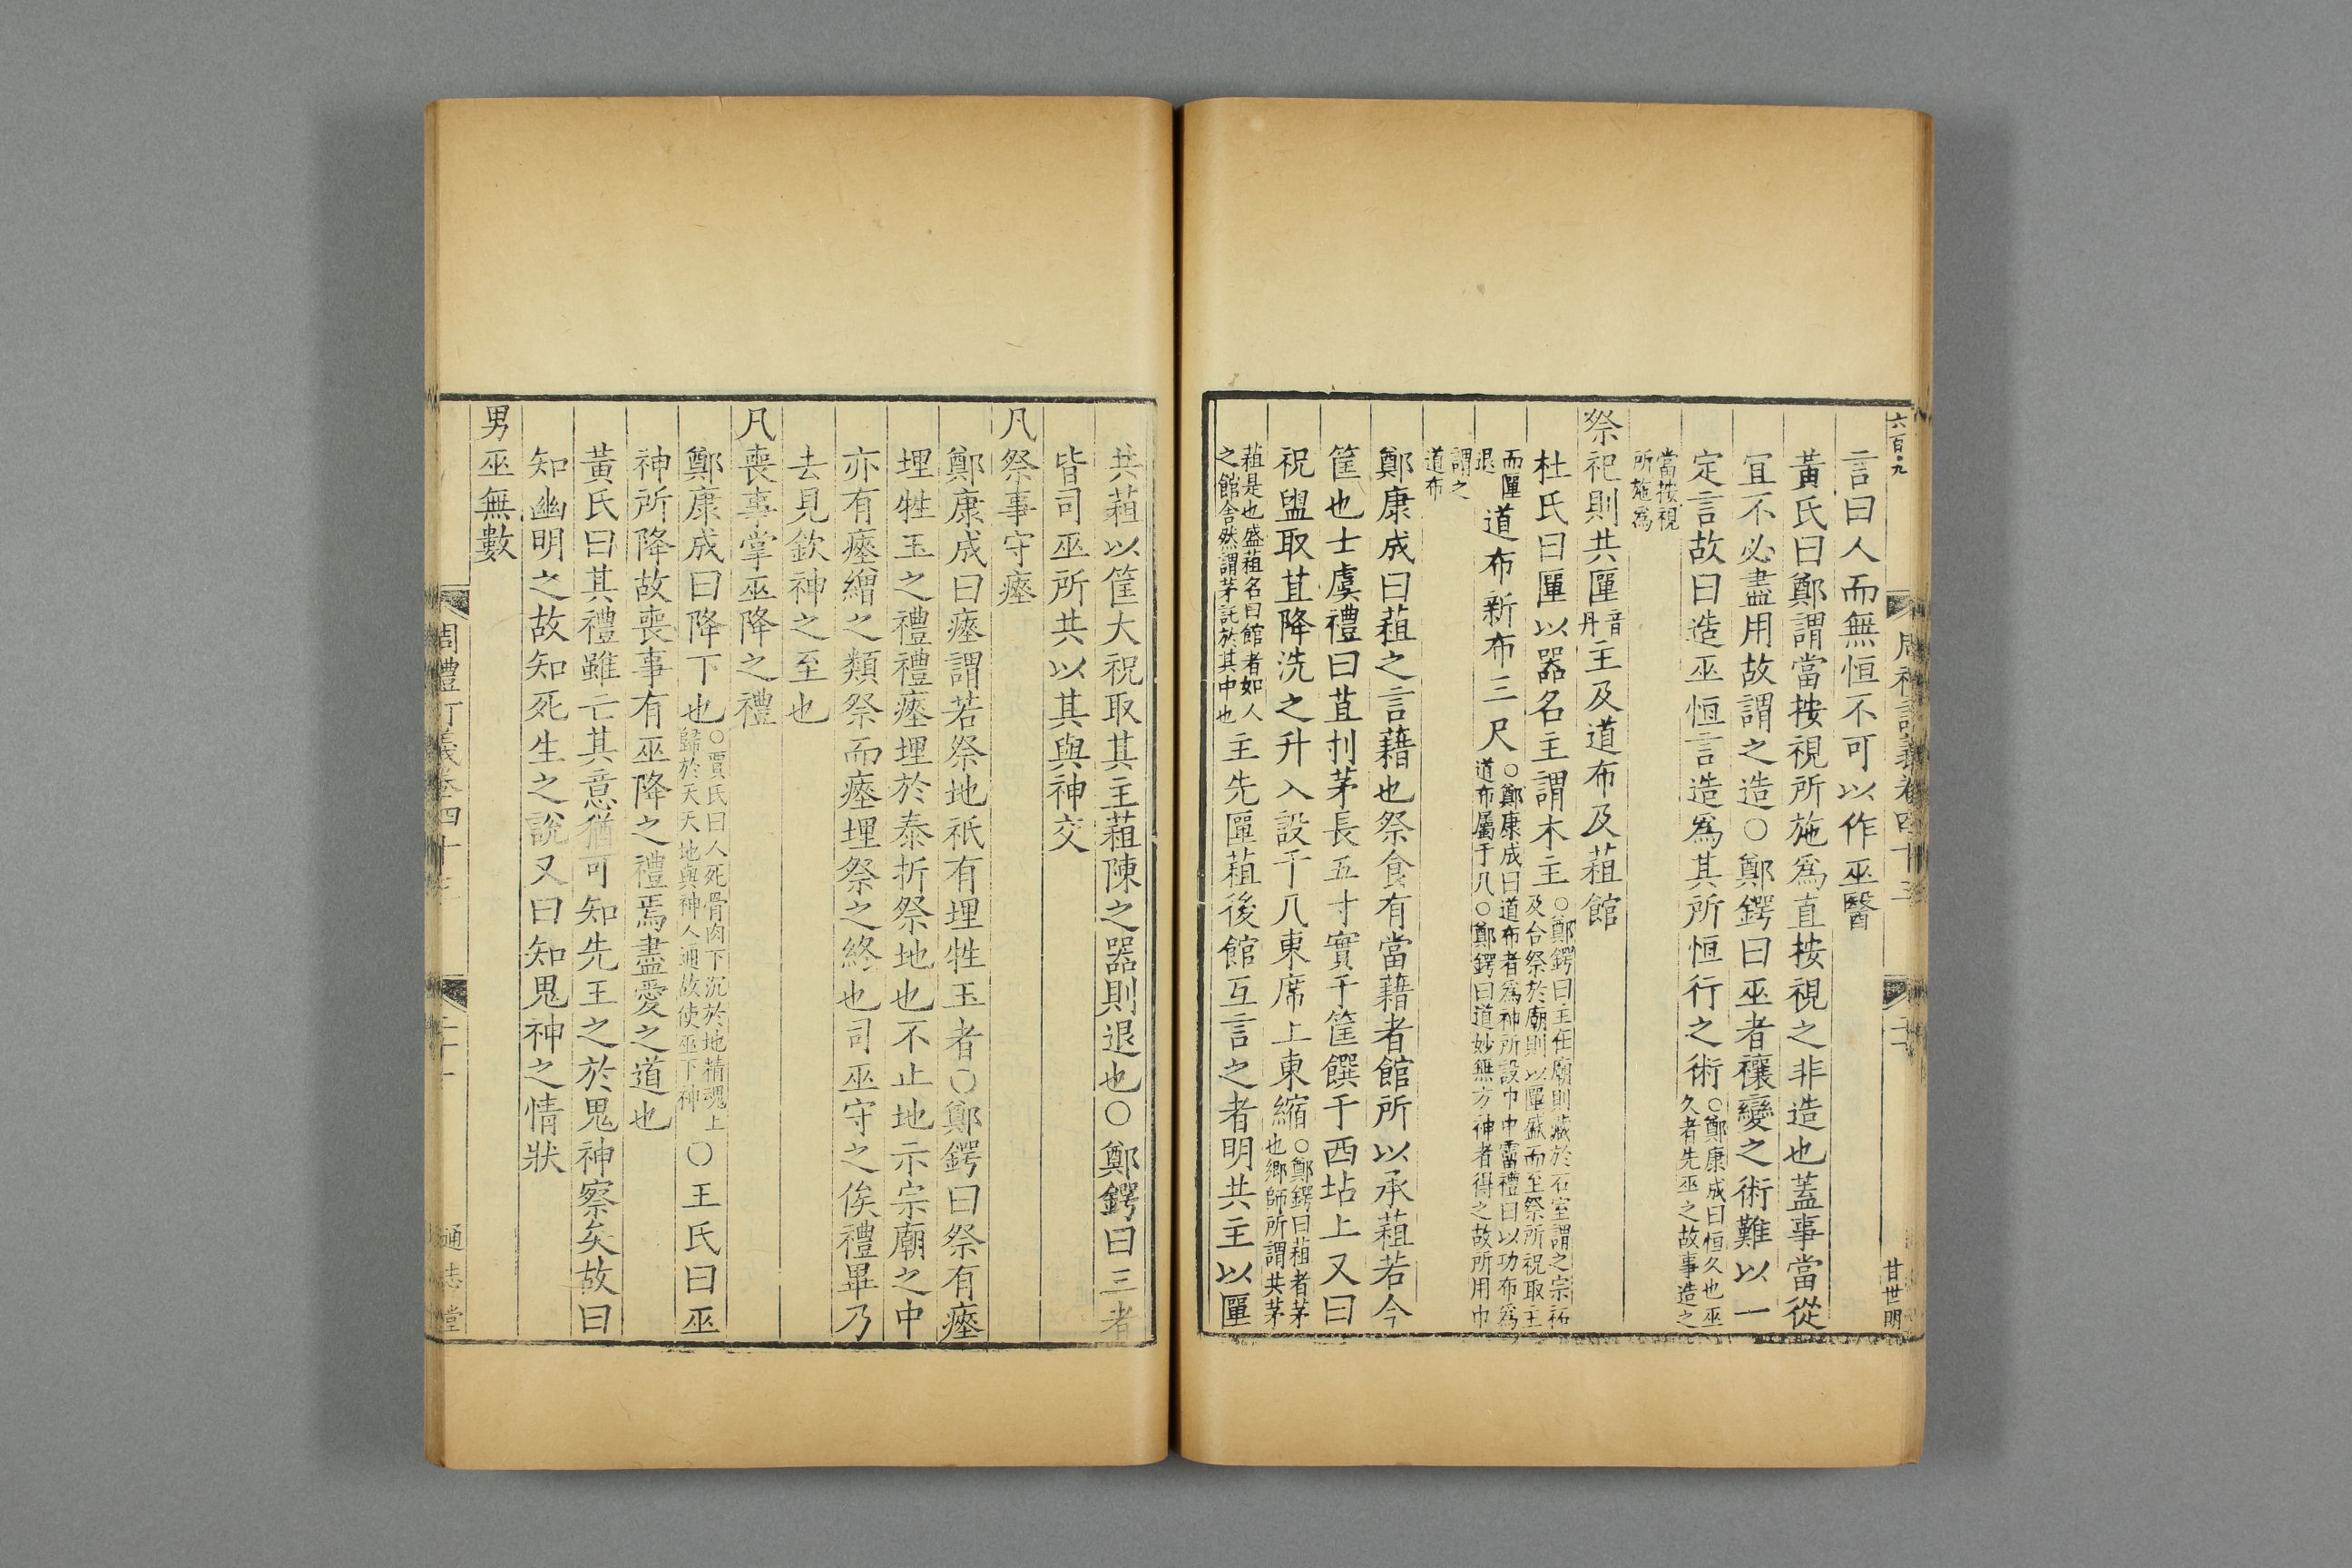 六百九
甘世明
言曰人而無恒不可以作巫醫
黃氏曰鄭謂當按視所施爲直按視之非造也蓋事當從
宜不必盡用故謂之造○鄭鍔曰巫者禳變之術難以一
定言故曰造巫恒言造爲其所恒行之術○鄭康成曰恒久也巫久者先巫之故事造之
當按視所施爲
祭祀則共匰音丹主及道布及蒩館
杜氏曰匰以器名主謂木主○鄭鍔曰主在廟則藏於石室謂之宗祏及合祭於廟則以匰盛而至祭所祝取主
而匰退道布新布三尺○鄭康成曰道布者爲神所設巾中霤禮曰以功布爲道布屬于几○鄭鍔曰道妙無方神者得之故所用巾
謂之道布
鄭康成曰蒩之言藉也祭食有當藉者館所以承蒩若今
筐也士虞禮曰苴刌茅長五寸實于筐饌于西坫上又曰
祝盥取苴降洗之升入設于几東席上東縮○鄭鍔曰蒩者茅也鄉師所謂共茅
蒩是也盛蒩名曰館者如人之館舍然謂茅託於其中也主先匰蒩後館互言之者明共主以匰
共蒩以筐大祝取其主蒩陳之器則退也○鄭鍔曰三者
皆司巫所共以其與神交
凡祭事守瘞
鄭康成曰瘞謂若祭地祇有埋牲玉者○鄭鍔曰祭有瘞
埋牲玉之禮禮瘞埋於泰折祭地也不止地示宗廟之中
亦有瘞繒之類祭而瘞埋祭之終也司巫守之俟禮畢乃
去見欽神之至也
凡喪事掌巫降之禮
鄭康成曰降下也○賈氏曰人死骨肉下沉於地精魂上歸於天天地與神人通故使巫下神○王氏曰巫
神所降故喪事有巫降之禮焉盡愛之道也
黃氏曰其禮雖亡其意猶可知先王之於鬼神察矣故曰
知幽明之故知死生之說又曰知鬼神之情狀
男巫無數
通志堂